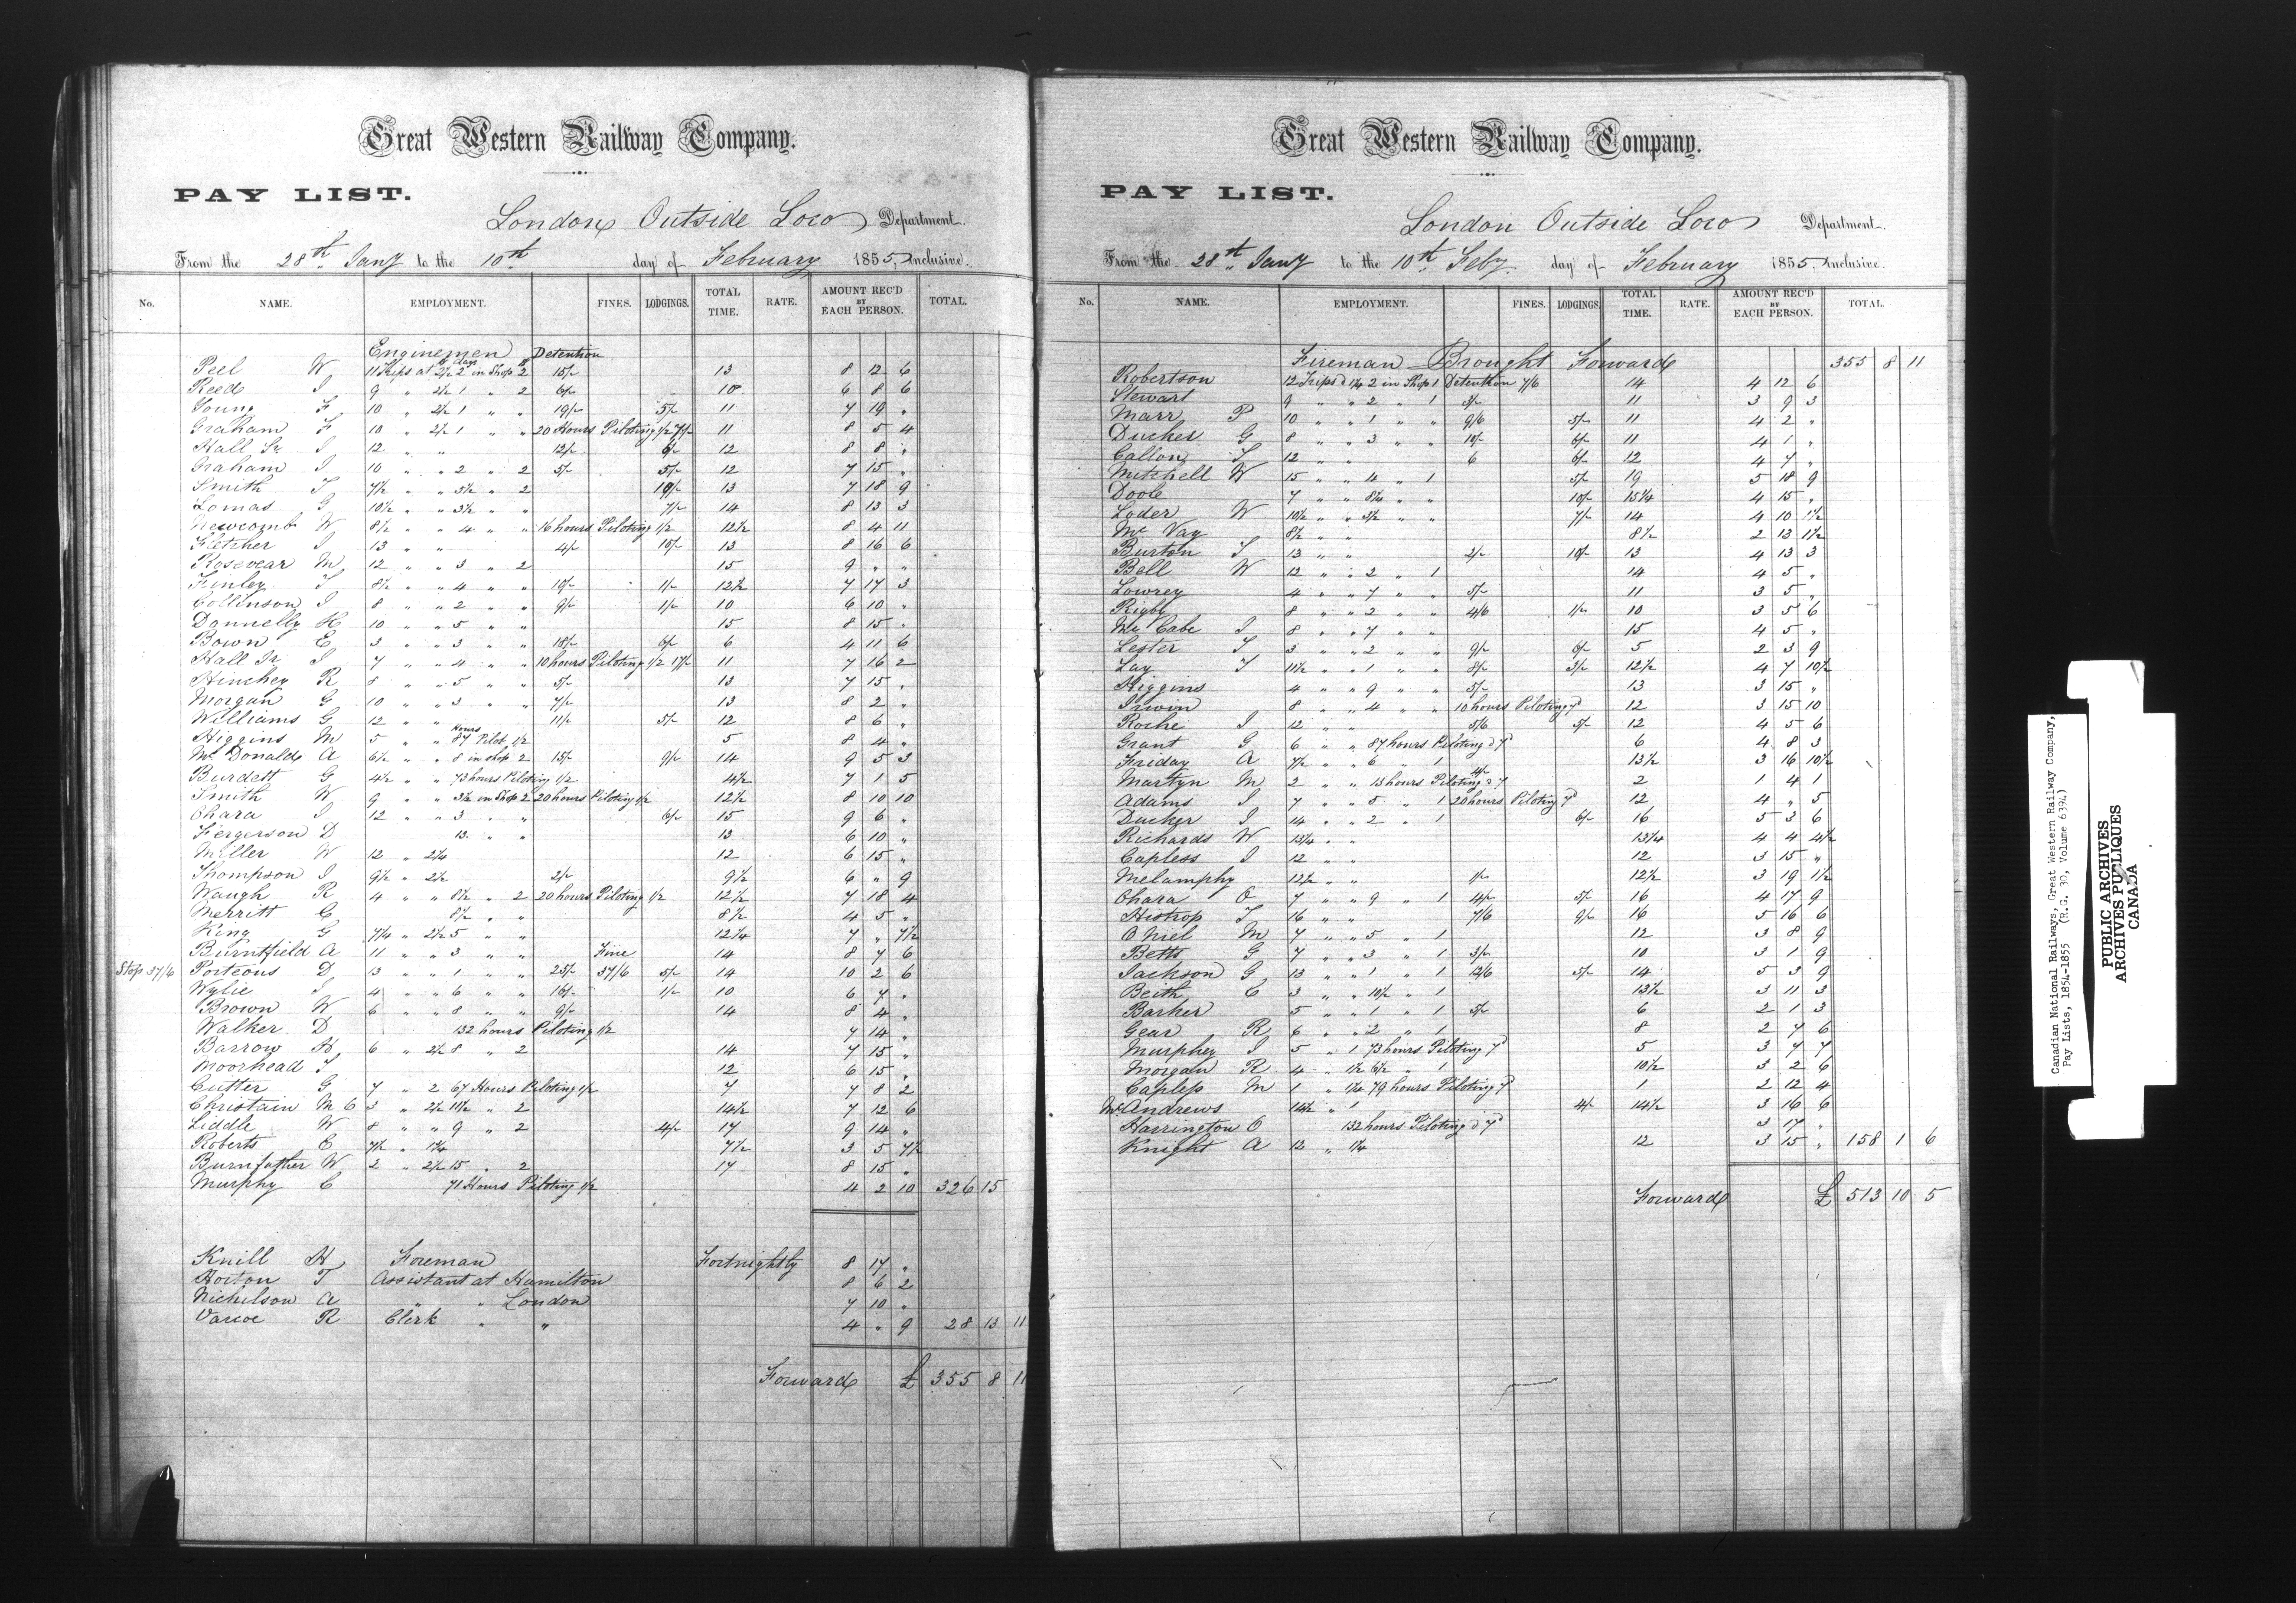 Great Western Railway Company.
PAY LIST.
London Outside Loco Department.
From the 28th Jany to the 10th day of February 1855, Inclusive.
No. NAME. EMPLOYMENT. FINES. LODGINGS. TOTAL TIME. RATE. AMOUNT REC'D BY EACH PERSON. TOTAL.
Enginemen Detention
Peel W 11 Trips at 2/2 days 2 in Shop 2 15/- 13 8 12 6
Reed J 9 " 2/2 1 " 2 6/- 10 6 8 6
Young F 10 " 2/2 1 " " 19/- 5/- 11 7 19 "
Graham F 10 " 2/2 1 " " 20 Hours Piloting 1/2 7/- 11 8 5 4
Hall Sr J 12 " " 12/- 6/- 12 8 8 "
Graham J 10 " " 2 " 2 5/- 5/- 12 7 15 "
Smith T 7½ " " 5½ " 2 19/- 13 7 18 9
Lomas G 10½ " " 3½ " " 7/- 14 8 13 3
Newcomb W 8½ " " 4 " " 16 hours Piloting 1/2 12½ 8 4 11
Fletcher J 13 " " 4/- 15/- 13 8 16 6
Rosevear M 12 " " 3 " 2 15 9 " "
Finley T 8½ " " 4 " " 10/- 1/- 12½ 7 17 3
Collinson J 8 " " 2 " " 9/- 1/- 10 6 10 "
Donnelly H 10 " " 5 " " 15 8 15 "
Bown E 3 " " 3 " " 18/- 6/- 6 4 11 6
Hall Jr J 7 " " 4 " " 10 hours Piloting 1/2 17/- 11 7 16 2
Hinchey R 8 " " 5 " " 5/- 13 7 15 "
Morgan G 10 " " 3 " " 7/- 13 8 2 "
Williams G 12 " " 11/- 5/- 12 8 6 "
Higgins M 5 " " 87 Hours Pilot 1/2 5 8 4 "
McDonald A 6½ " " 8 in shop 2 15/- 9/- 14 9 5 3
Burdett G 4½ " " 73 hours Piloting 1/2 4½ 7 1 5
Smith W 9 " " 3½ in Shop 2 20 hours Piloting 1/2 12½ 8 10 10
Ohara J 12 " " 3 " " 6/- 15 9 6 "
Fergerson D 13 " " 13 6 10 "
Miller W 12 " 2/4 12 6 15 "
Thompson J 9½ " 2/2 2/- 9½ 6 " 9
Waugh R 4 " " 8½ " 2 20 hours Piloting 1/2 12½ 7 18 4
Merritt G 8½ " " 8½ 4 5 "
King G 7¼ " 2/2 5 " " 12¼ 7 " 7½
Burntfield A 11 " " 3 " " Fine 14 8 7 6
Stop 37/6 Porteous D 13 " " 1 " " 25/- 37/6 5/- 14 10 2 6
Wylie J 4 " " 6 " " 16/- 1/- 10 6 7 "
Brown W 6 " " 8 " " 9/- 14 8 4 "
Walker D 132 hours Piloting 1/2 7 14 "
Barrow H 6 " 2/2 8 " 2 14 7 15 "
Moorhead T 12 6 15 "
Cutter G 7 " 2 67 Hours Piloting 1/2 7 7 8 2
Christain M C 3 " 2/2 11½ " 2 14½ 7 12 6
Liddle W 8 " " 9 " 2 4/- 17 9 14 "
Roberts E 7½ " 1¾ 7½ 3 5 7½
Burnfather W 2 " 2/2 15 " 2 17 8 15 "
Murphy C 71 Hours Piloting 1/2 4 2 10 326 15
Knill H Foreman Fortnightly 8 17 "
Horton T Assistant at Hamilton 8 6 2
Nichilson A " " London 7 10 "
Varcoe R Clerk " " 4 " 9 28 13 11
Forward £ 355 8 11
Great Western Railway Company.
PAY LIST.
London Outside Loco Department.
From the 28th Jany to the 10th Feby. day of February 1855, Inclusive.
No. NAME. EMPLOYMENT. FINES. LODGINGS. TOTAL TIME. RATE. AMOUNT REC'D BY EACH PERSON. TOTAL.
Fireman Brought Forward 355 8 11
Robertson 12 Trips @ 1/4 2 in Shop 1 Detention 7/6 14 4 12 6
Stewart 9 " " 2 " 1 3/- 11 3 9 3
Marr P 10 " " 1 " " 9/6 5/- 11 4 2 "
Ducher G 8 " " 3 " " 10/- 6/- 11 4 1 "
Callon T 12 " " 6 6/- 12 4 7 "
Mitchell W 15 " " 4 " 1 5/- 19 5 18 9
Doole 7 " " 8¼ " " 10/- 15¼ 4 15 "
Loder W 10½ " " 3½ " " 7/- 14 4 10 1½
Mc Vay 8½ " " 8½ 2 13 1½
Burton T 13 " " 2/- 10/- 13 4 13 3
Ball W 12 " " 2 " 1 14 4 5 "
Lowrey 4 " " 7 " " 5/- 11 3 5 "
Rigby 8 " " 2 " " 4/6 1/- 10 3 5 6
McCabe J 8 " " 7 " " 15 4 5 "
Lester T 3 " " 2 " " 9/- 6/- 5 2 3 9
Lay T 11½ " " 1 " " 8/- 3/- 12½ 4 7 10½
Higgins 4 " " 9 " " 5/- 13 3 15 "
Irwin 8 " " 4 " " 10 hours Piloting 7d 12 3 15 10
Roche J 12 " " 5/6 5/- 12 4 5 6
Grant G 6 " " 87 hours Piloting @ 7d 6 4 8 3
Friday A 7½ " " 6 " 1 13½ 3 16 10½
Martyn M 2 " " 13 hours Piloting @ 7 4/- 2 1 4 1
Adams J 7 " " 5 " 1 20 hours Piloting 7d 12 4 " 5
Ducher J 14 " " 2 " 1 6/- 16 5 3 6
Richards W 13¼ " " 13¼ 4 4 4½
Capless J 12 " " 12 3 15 "
Melamphy 12½ " " 1/- 12½ 3 19 1½
Ohara O 7 " " 9 " 1 4/- 5/- 16 4 17 9
Histrop T 16 " " 7/6 9/- 16 5 16 6
O Niel M 7 " " 5 " 1 12 3 8 9
Betts G 7 " " 3 " 1 3/- 10 3 1 9
Jackson G 13 " " 1 " 1 12/6 5/- 14 5 3 9
Beith C 3 " " 10½ " 1 13½ 3 11 3
Barker 5 " " 1 " 1 5/- 6 2 1 3
Gear R 6 " " 2 " 1 8 2 7 6
Murphey J 5 " 1 73 hours Piloting 7d 5 3 7 7
Morgan R 4 " 1½ 6½ " 1 10½ 3 2 6
Capless M 1 " 1¼ 79 hours Piloting 7d 1 2 12 4
McAndrews 14½ " 1 4/- 14½ 3 16 6
Harrington O 132 hours Piloting @ 7d 3 17 "
Knight A 12 " 1/4 12 3 15 " 158 1 6
Forward £ 513 10 5
Canadian National Railways, Great Western Railway Company,
Pay Lists, 1854-1855 (R.G. 30, Volume 6394)
PUBLIC ARCHIVES
ARCHIVES PUBLIQUES
CANADA